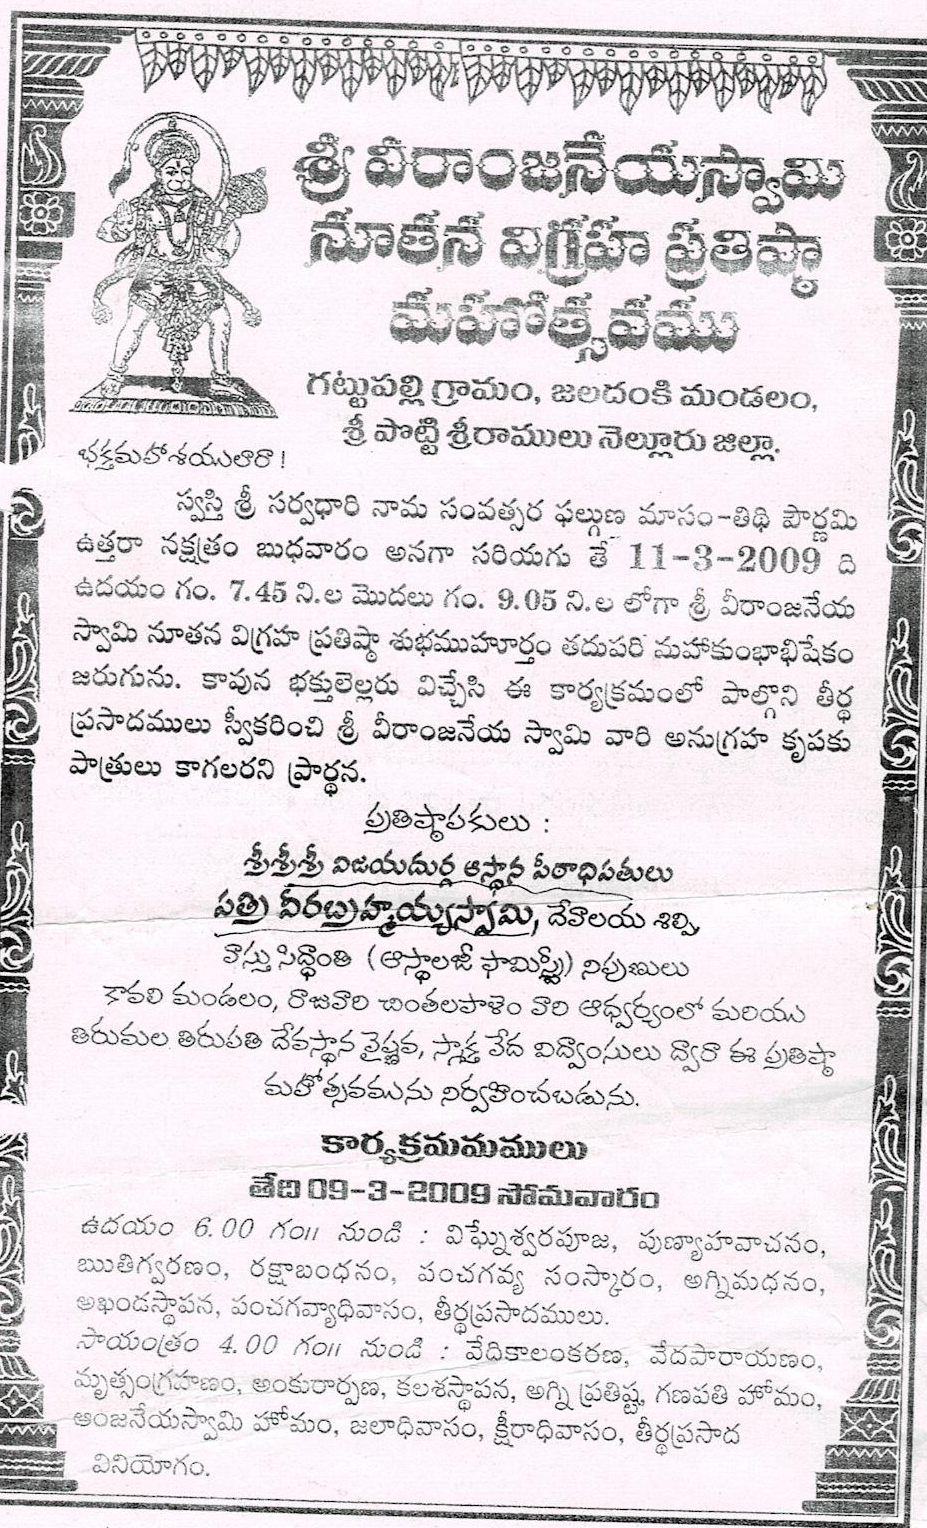 శ్రీ వీరాంజనేయస్వామి
నూతన విగ్రహ ప్రతిష్ఠా
మహోత్సవము
గట్టుపల్లి గ్రామం, జలదంకి మండలం,
శ్రీ పొట్టి శ్రీరాములు నెల్లూరు జిల్లా.
భక్తమహాశయులారా !
స్వస్తి శ్రీ సర్వధారి నామ సంవత్సర ఫల్గుణ మాసం-తిథి పౌర్ణమి
ఉత్తరా నక్షత్రం బుధవారం అనగా సరియగు తే 11-3-2009 ది
ఉదయం గం. 7.45 ని.ల మొదలు గం. 9.05 ని.ల లోగా శ్రీ వీరాంజనేయ
స్వామి నూతన విగ్రహ ప్రతిష్ఠా శుభముహూర్తం తదుపరి మహాకుంభాభిషేకం
జరుగును. కావున భక్తులెల్లరు విచ్చేసి ఈ కార్యక్రమంలో పాల్గొని తీర్థ
ప్రసాదములు స్వీకరించి శ్రీ వీరాంజనేయ స్వామి వారి అనుగ్రహ కృపకు
పాత్రులు కాగలరని ప్రార్థన.
ప్రతిష్ఠాపకులు :
శ్రీశ్రీశ్రీ విజయదుర్గ ఆస్థాన పీఠాధిపతులు
పత్రి వీరబ్రహ్మయ్యస్వామి, దేవాలయ శిల్పి,
వాస్తు సిద్ధాంతి (ఆస్ట్రాలజీ ఫామిస్ట్రీ) నిపుణులు
కావలి మండలం, రాజువారి చింతలపాళెం వారి ఆధ్వర్యంలో మరియు
తిరుమల తిరుపతి దేవస్థాన వైష్ణవ, స్మార్త వేద విద్వాంసులు ద్వారా ఈ ప్రతిష్ఠా
మహోత్సవమును నిర్వహించబడును.
కార్యక్రమమములు
తేది 09-3-2009 సోమవారం
ఉదయం 6.00 గం॥ నుండి : విఘ్నేశ్వరపూజ, పుణ్యాహవాచనం,
ఋతిగ్వరణం, రక్షాబంధనం, పంచగవ్య సంస్కారం, అగ్నిమధనం,
అఖండస్థాపన, పంచగవ్యాధివాసం, తీర్థప్రసాదములు.
సాయంత్రం 4.00 గం॥ నుండి : వేదికాలంకరణ, వేదపారాయణం,
మృత్సంగ్రహణం, అంకురార్పణ, కలశస్థాపన, అగ్ని ప్రతిష్ట, గణపతి హోమం,
ఆంజనేయస్వామి హోమం, జలాధివాసం, క్షీరాధివాసం, తీర్థప్రసాద
వినియోగం.